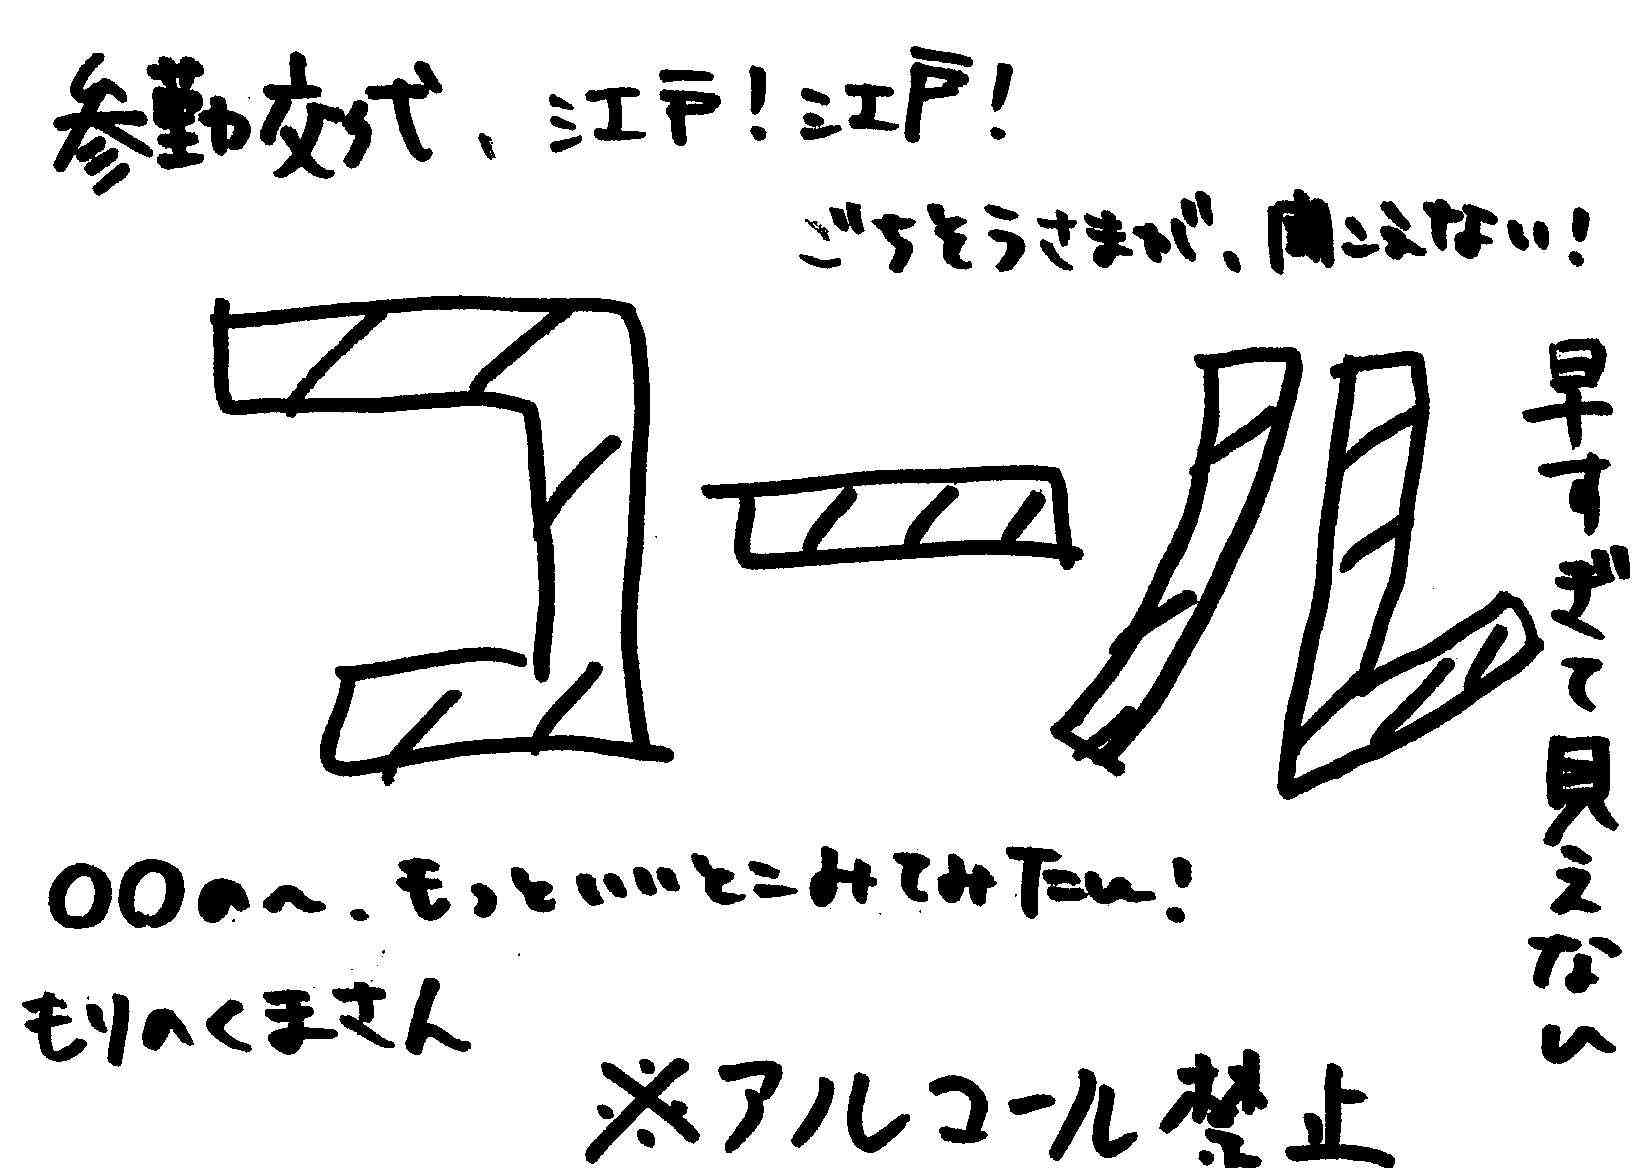 参勤交代、江戸！江戸！
ごちそうさまが、聞こえない！
コール
早すぎて見えない
〇〇の〜、もっといいとこみてみたい！
もりのくまさん
※アルコール禁止